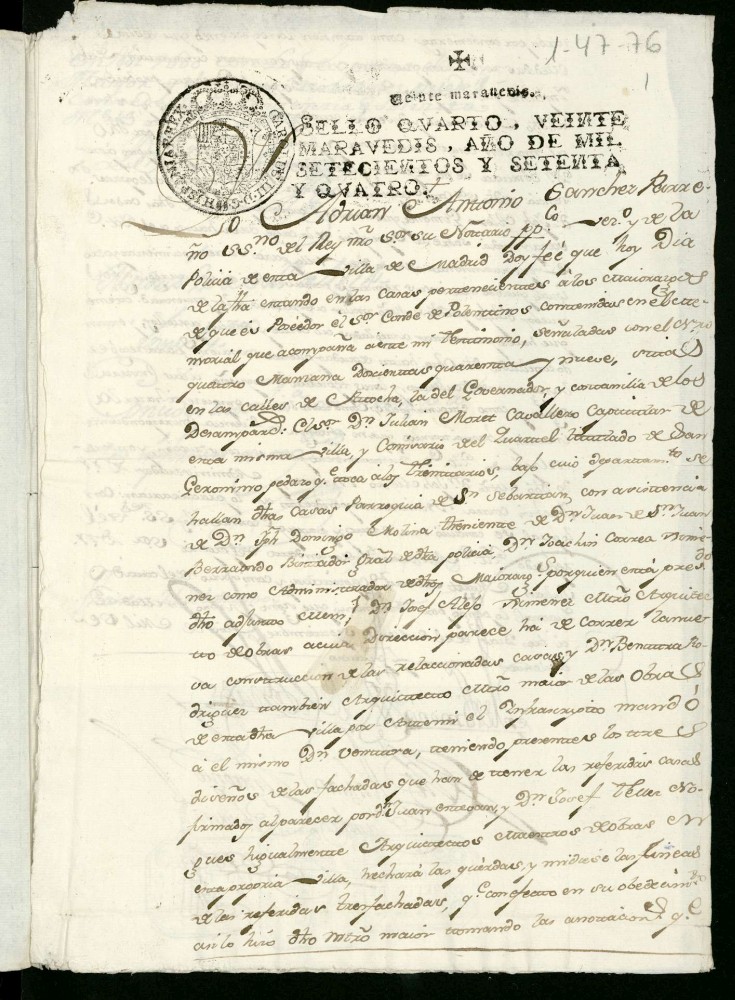 1-47-76
1
Veinte maravedis.
SELLO QVARTO, VEINTE
MARAVEDIS, AÑO DE MIL
SETECIENTOS Y SETENTA
Y QVATRO.
CAROLUS III D G HISPANIAR REX
Yo Adrian Antonio Sanchez Parre-
ño SSno. del Rey nro Sor. su Notario ppco. y de la
Policia de esta Villa de Madrid Doy feé que hoy Dia
de la fha estando en las casas pertenecientes á los Maiorazgos
de que es Poseedor el Sor. Conde de Polentinos contenidas en el Me-
morial que acompaña a este mi testimonio, señaladas con el Nro
quatro Manzana Doscientas quarenta y nueve, sitas
en las calles de Atocha, la del Governador, y costanilla de los
Desampards: el Sor. Dn. Julian Moret Cavallero Capitular de
esta misma Villa, y Comisario del Quartel titulado de San
Geronimo pedazo qe. toca a los Trinitarios, bajo cuio departamto. se
hallan dhas Casas Parroquia de Sn. Sebastian, con asistencia
de Dn. Jph Domingo Molina theniente de Dn. Juan de Sn. Juan
Berraondo Visitador Gral de dha policia, Dn. Joachin Correa
ner como Administrador de dhos Maiorazgs. por quien está presdo.
dho adjunto Mem; Dn. Josef Alejo Ximenez Mtro Arquitec
to de obras a cuia Direccion parece há de correr la nue
va construccion de las relaccionadas casas, y Dn. Bentura Ro-
driguez tambien Arquitecto Mtro maior de las Obras
de esta dha Villa por Ante mi el Infrascripto mandó
á el mismo Dn. Ventura, teniendo presentes los tres
diseños de las fachadas que han de tener las referidas casas
firmados al parecer por dn. Juan y Dn. Josef
gues higualmente Arquitectos Maestros de obras en
esta propria Villa, hechará las querdas, y midiese las lineas
de las referidas tres fachadas, y con efecto en su obedecimto.
asi lo hizo dho Mtro maior tomando las anotaciones qe.